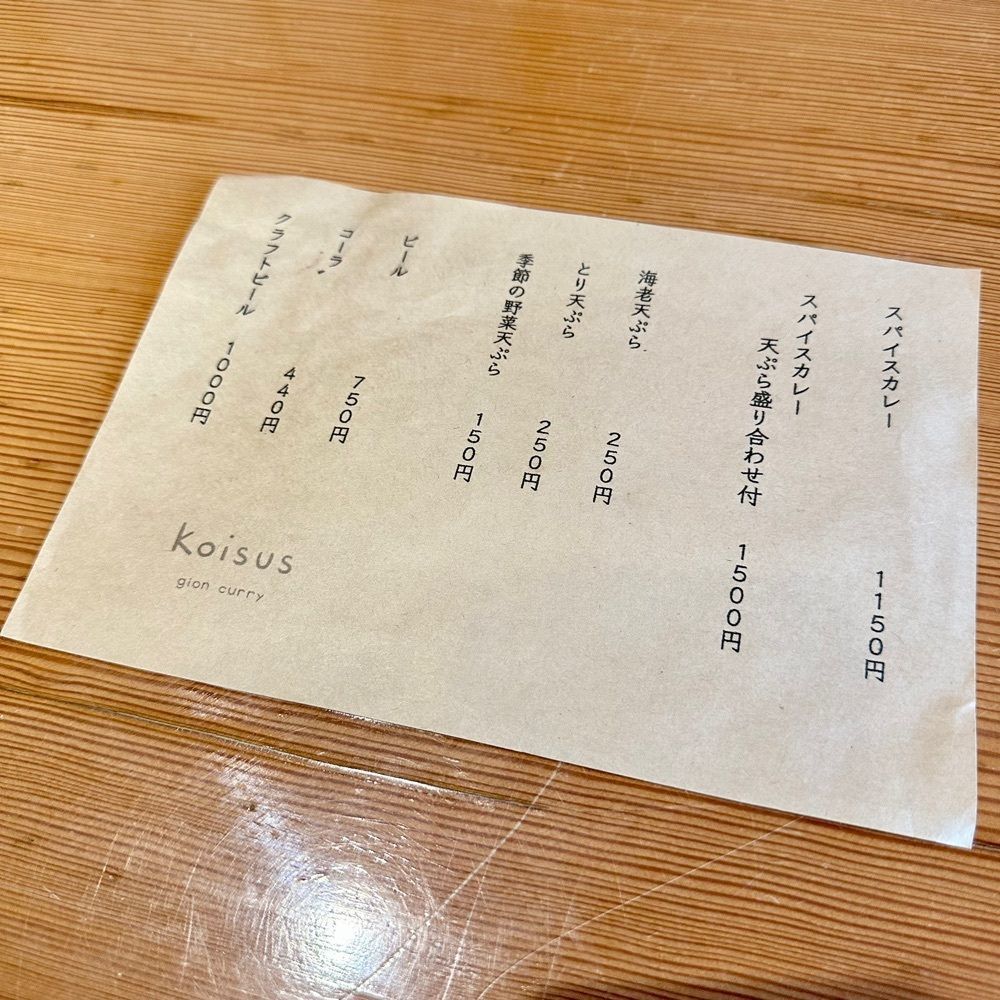 スパイスカレー 1150円
スパイスカレー
天ぷら盛り合わせ付 1500円
海老天ぷら 250円
とり天ぷら 250円
季節の野菜天ぷら 150円
ビール 750円
コーラ 440円
クラフトビール 1000円
Koisus
gion curry